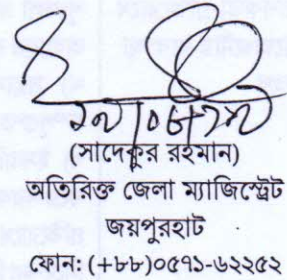 (সাদেকুর রহমান)
অতিরিক্ত জেলা ম্যাজিস্ট্রেট
জয়পুরহাট
ফোন: (+৮৮)০৫৭১-৬২২৫২